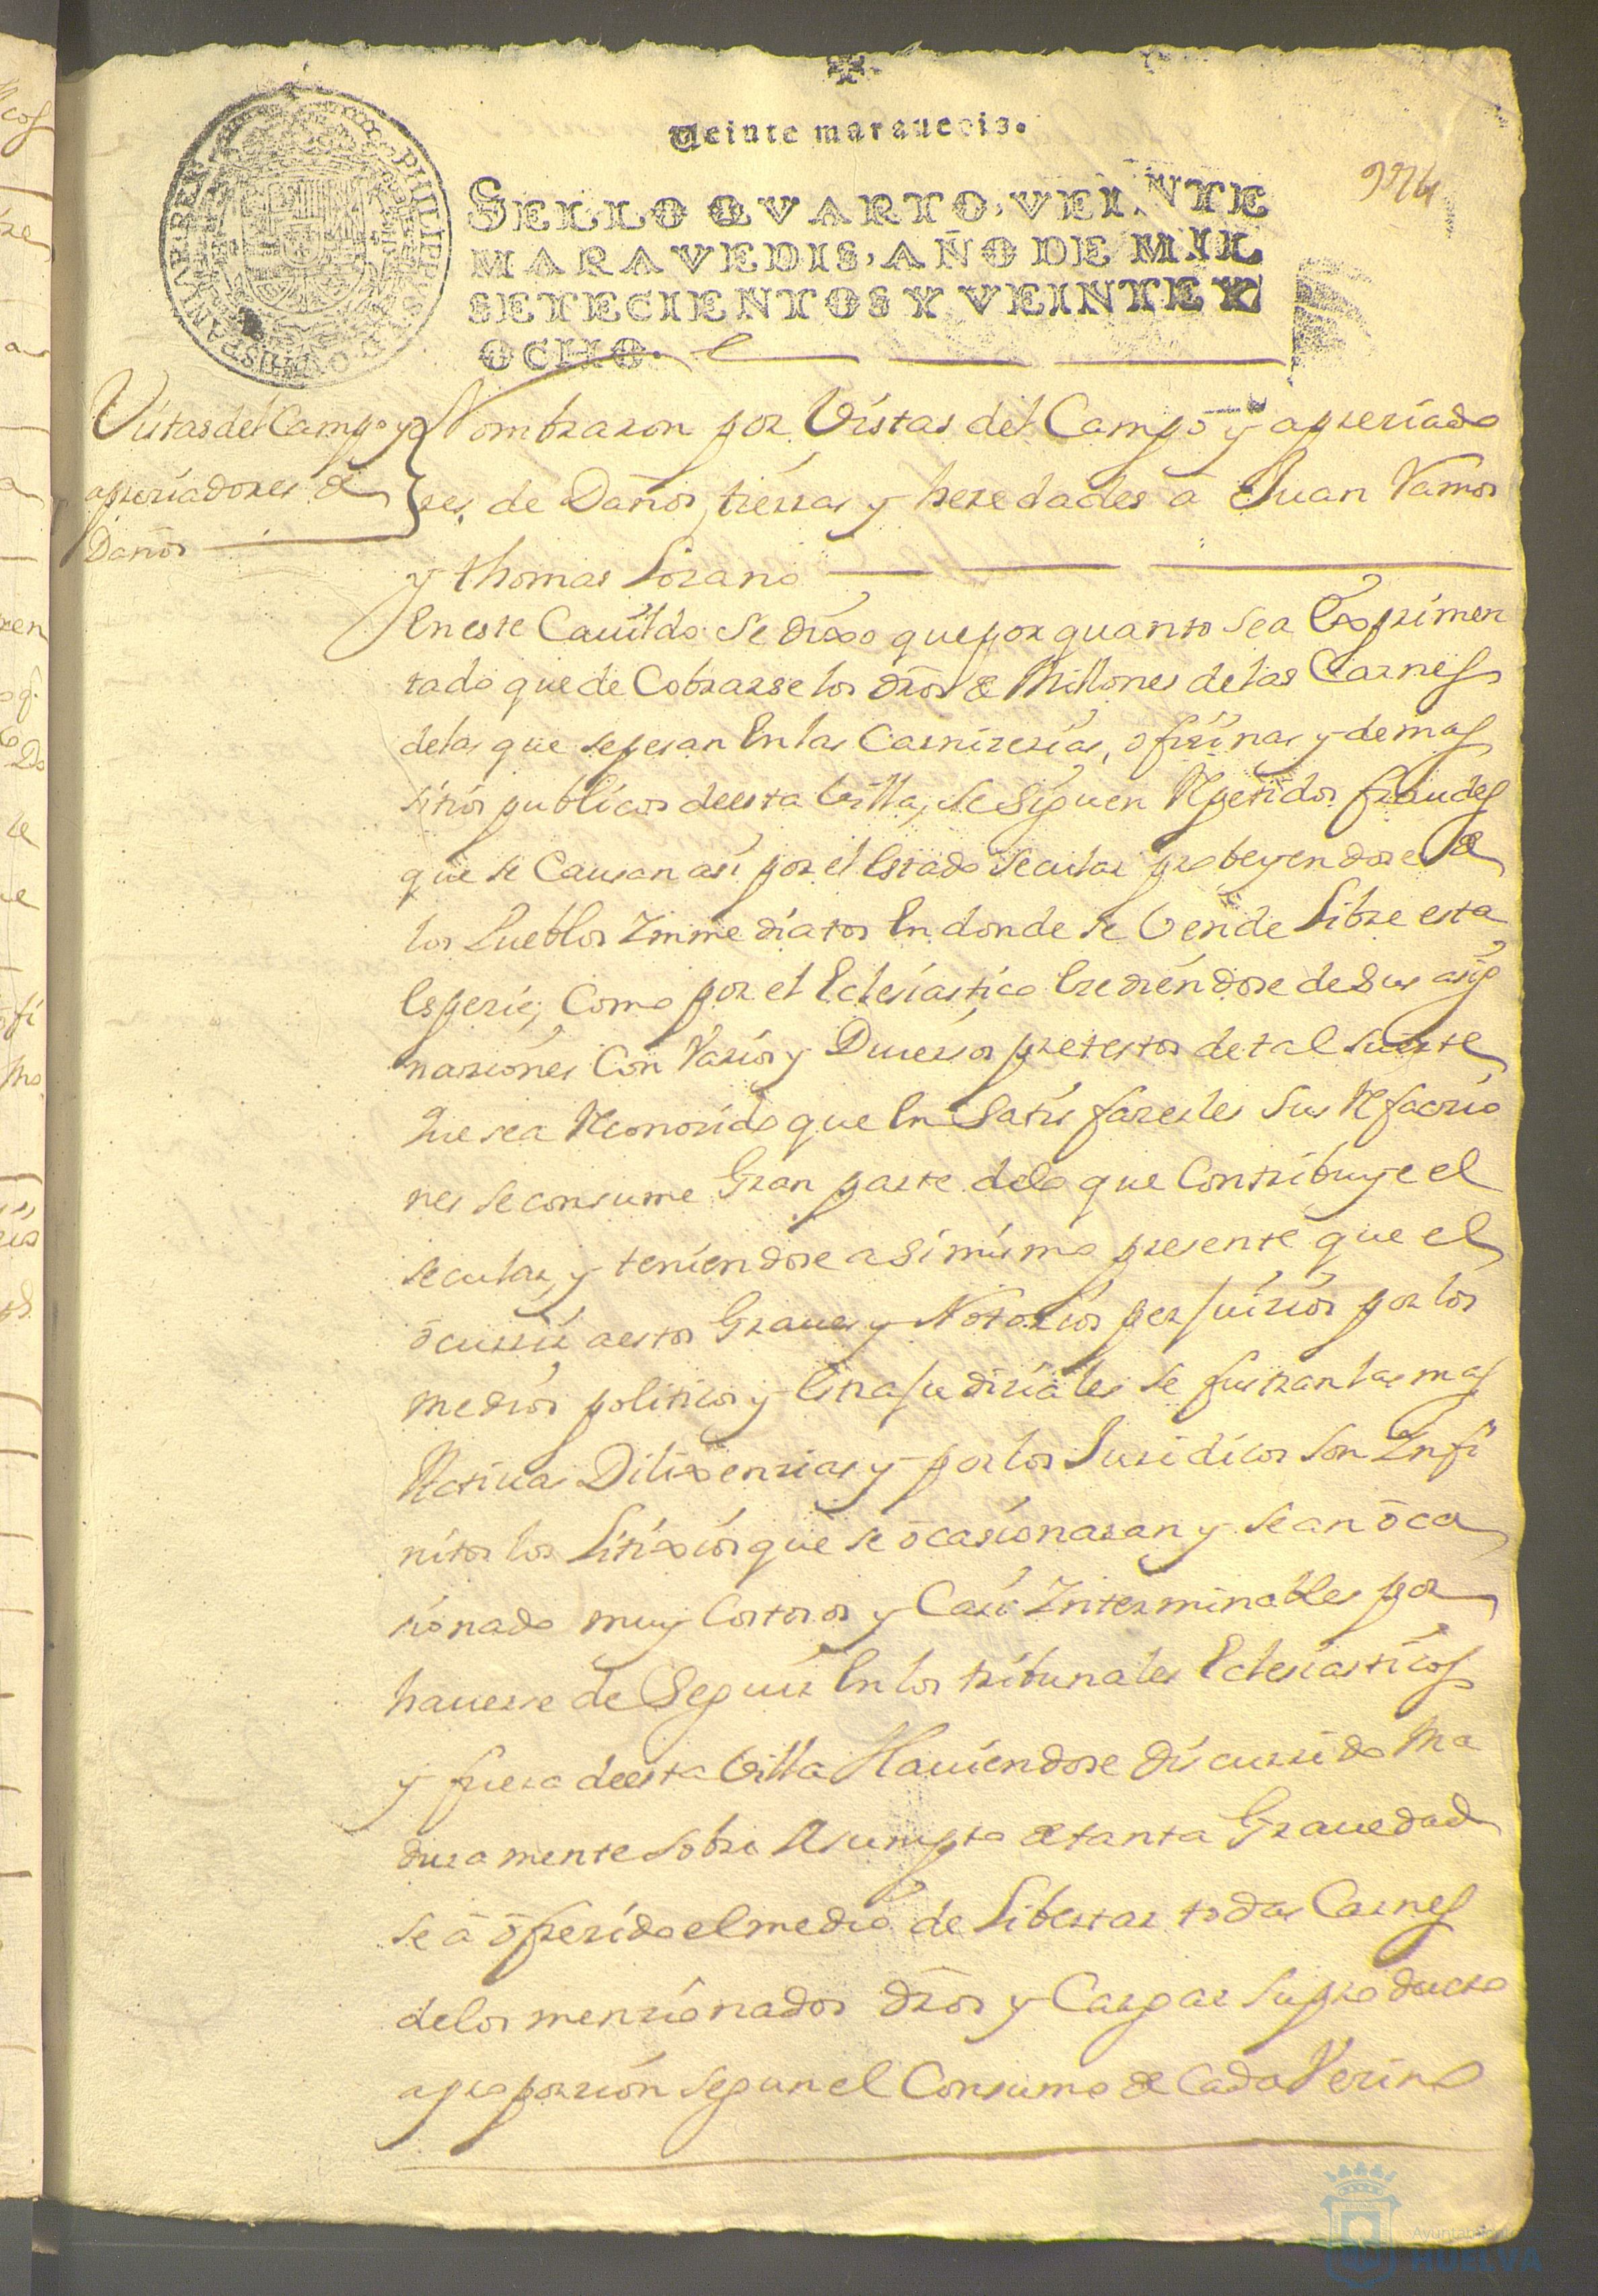 Veinte maravedis.
SELLO QVARTO, VEINTE
MARAVEDIS, AÑO DE MIL
SETECIENTOS Y VEINTE Y
OCHO.
PHILIPPUS V D G HISPANIAR REX
Vistas del Campo y
apreciadores de
Daños
Nombraron por Vistas del Campo y apreciado
res, de Daños, tierras y heredades a Juan Ramos
y thomas Lozano
En este Cavildo se dixo que por quanto sea Exprimen
tado que de Cobrarse los dr̃os de Millones de las Carnes
delas que se pesan En las Carnizerias, oficinas y demas
sitios publicos de esta Villa, se siguen Repetidos fraudes
que se Causan asi por el Estado Secular probeyendose de
los Pueblos Immediatos En donde se Vende Libre esta
Especie, Como por el Eclesiastico Excediendose de Sus asig
naziones Con Varios y Diversos pretestos de tal suerte
Que sea Reconozido que En Satisfazerles Sus Refaccio
nes se consume Gran parte delo que Contribuye el
secular, y teniendose asimismo presente que el
ocurrir aestos Graves y Notorios perjuizios por los
medios politicos y Extrajudiziales se frustran las mas
Activas Dilixenzias y por los Juridicos son Infi
nitos los Litixios que se ocasionaran y se an oca
sionado muy Costosos y Casi Interminables por
haverse de Seguir En los tribunales Eclesiasticos
y fuera de esta Villa Haviendose discurrido Ma
duramente sobre Asumpto de tanta Gravedad
se a ofrezido el medio de Libertar todas Carnes
delos menzionados dr̃os y Cargar su producto
a proporzion segun el Consumo de Cada Vezino
Ayuntamiento
HUELVA